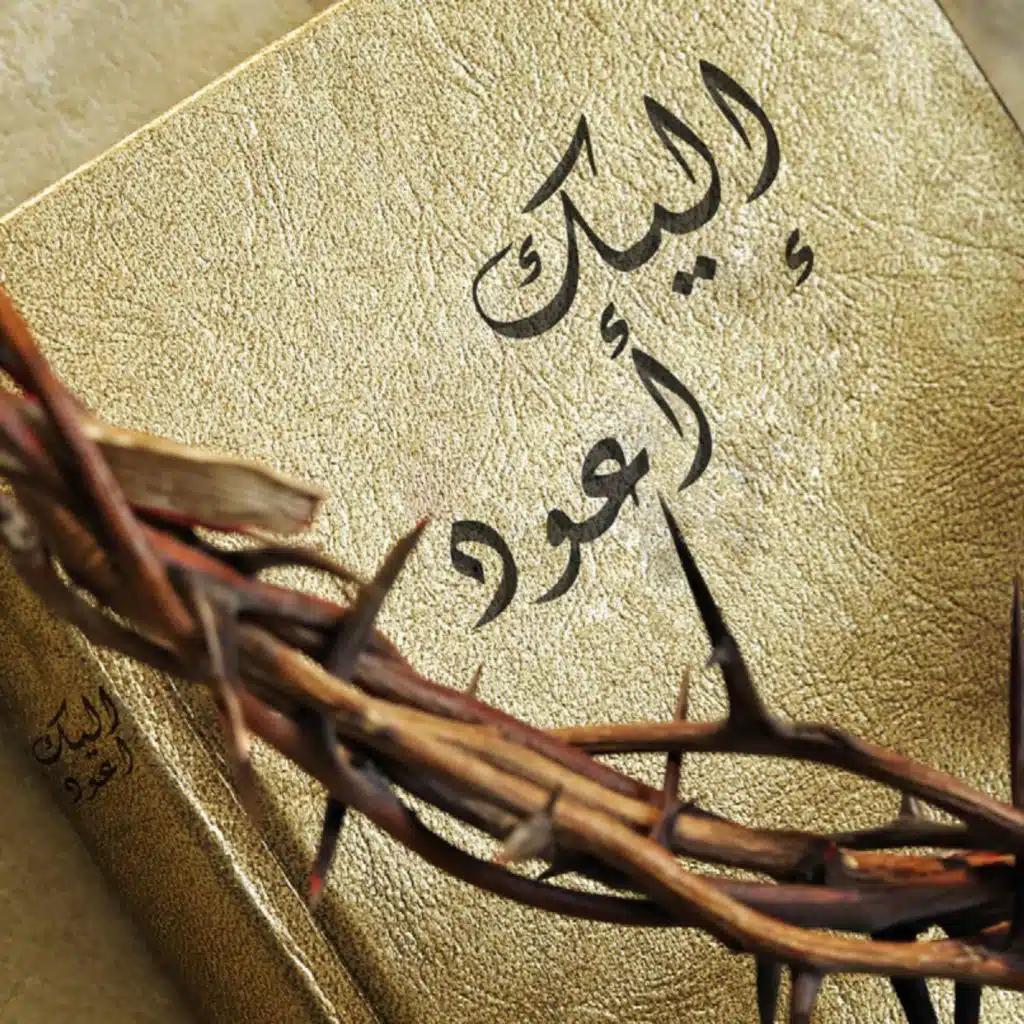 إليك
أعود
إليك
أعود